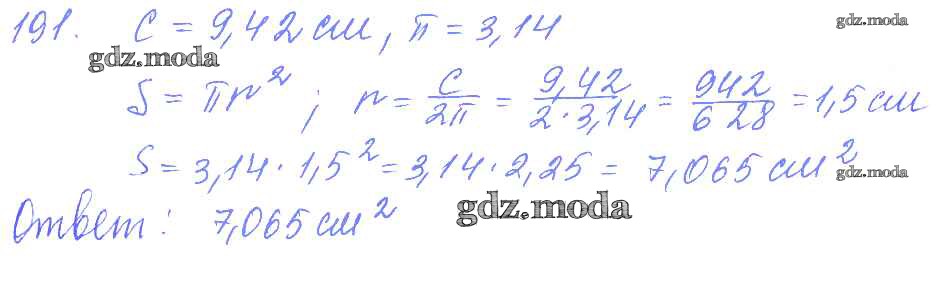 191. C = 9,42 см, π = 3,14
gdz.moda
gdz.moda
S = πr²; r = C/2π = 9,42/2·3,14 = 942/628 = 1,5 см
S = 3,14 · 1,5² = 3,14 · 2,25 = 7,065 см²
gdz.moda
Ответ: 7,065 см²
gdz.moda